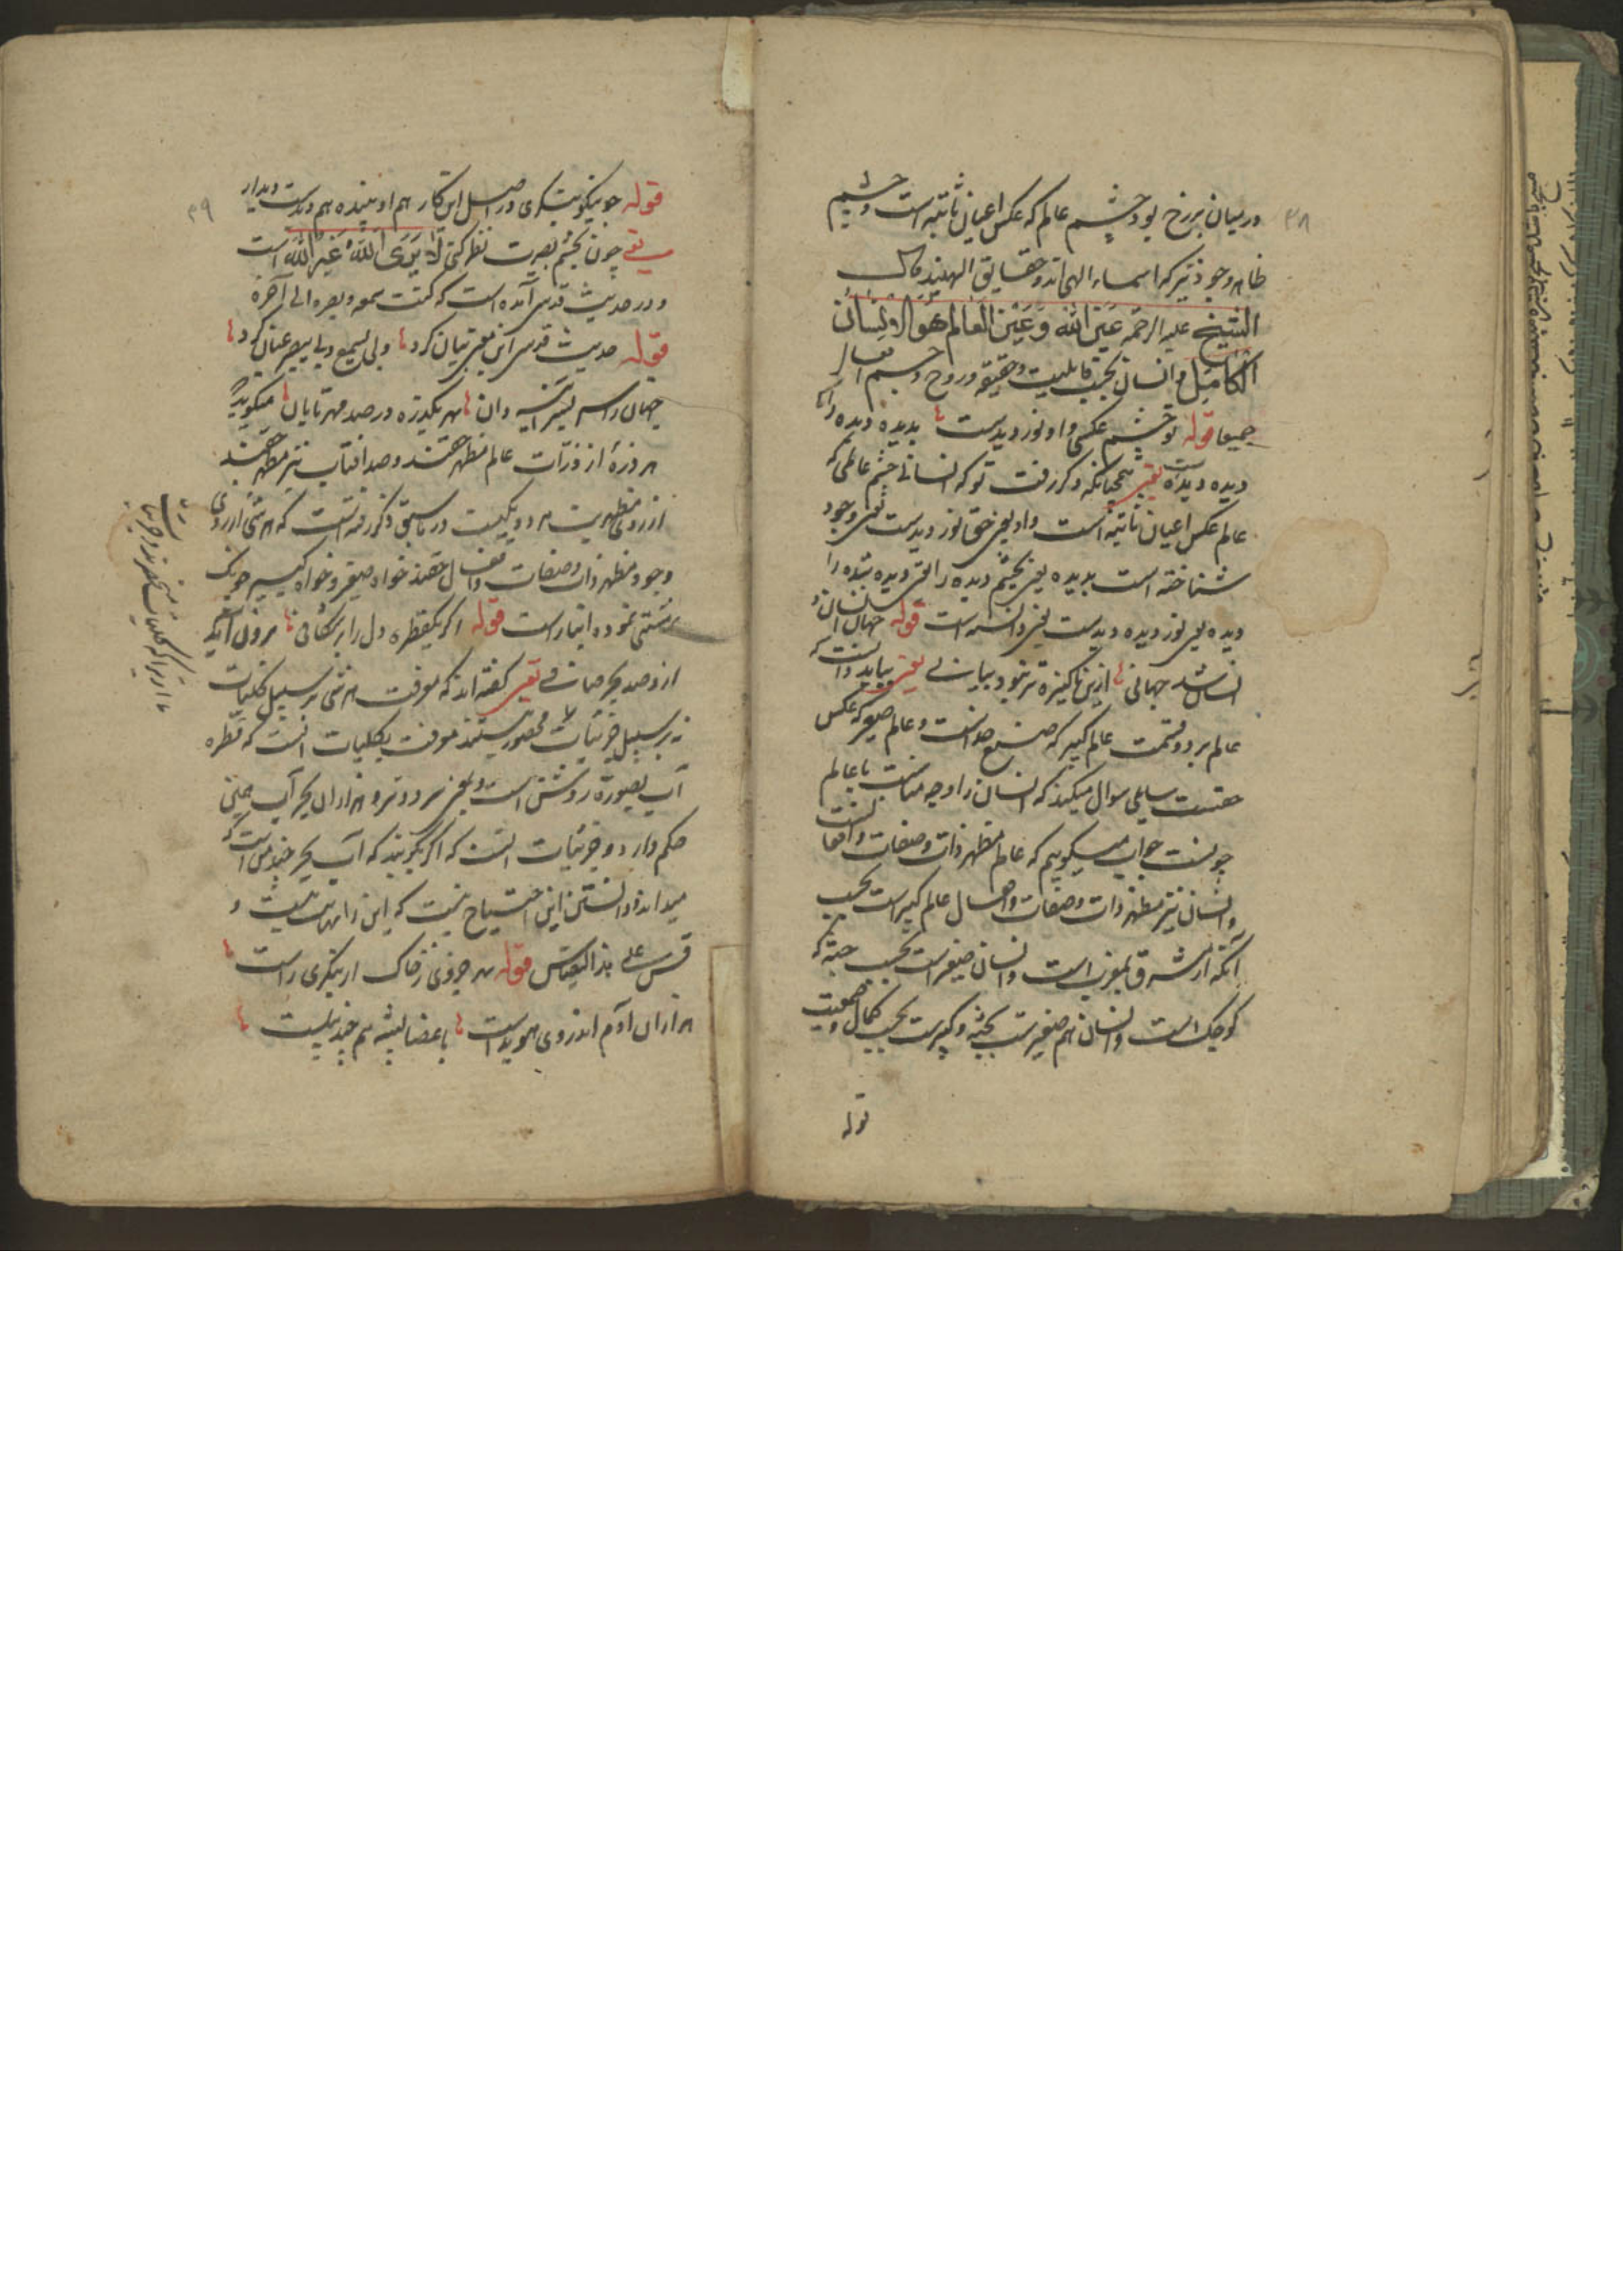 ۳۸
در میان برزخ بود چشم عالم که عکس اعیان ثابته است و چشم
ظاهر وجود نیز که اسماء الهی‌اند و حقایق الهیند قال
الشیخ علیه الرحمه عَیْنُ الله وَعَیْنُ العٰالم هُوَ الاِنسان
الکامِل و انسان بحسب قابلیت و حقیقه و روح و جسم
جمیعا قوله تو چشم عکسی و او نور دیدست بدیده دیده را
دیده دیدست یعنی همچنانکه ذکر رفت تو که انسانی چشم عالمی که
عالم عکس اعیان ثابته است و او یعنی حق نور دیدست یعنی وجود
شناخته است بدیده یعنی بچشم دیده را یعنی دیده شده را
دیده یعنی نور دیده دیدست یعنی دانسته است قوله جهان انسان و
انسان شد جهانی ازین پاکیزه‌تر نبود بیانی یعنی بباید دانست که
عالم بر دو قسمت عالم کبیر که صنع خداست و عالم صغیر که عکس
سایلی سوال میکند که انسان را وجه مناسبت با عالم
چونست جواب میگوییم که عالم مظهر ذات و صفات و افعال
و انسان نیز مظهر ذات و صفات و افعال عالم کبیر است بحسب
آنکه از مشرق تا بمغرب است و انسان صغیر است بحسب جثه که
کوچک است و انسان هم صغیرست بجثه و کبیرست بحسب کمال جمعیت
قوله
۳۹
قوله چو نیکو بنگری در اصل این کار هم او بیننده هم دیدست دیدار
یعنی چون بچشم بصیرت نظر کنی لٰا یَرَی اللّٰهَ غَیْرُ اللّٰه است
و در حدیث قدسی آمده است که کنت سمعه و بصره الی آخره
قوله حدیث قدسی این معنی بیان کرد و بی یسمع و بی یبصر عیان کرد
جهان را سر بسر آیینه دان بهر یکذره در صد مهر تابان میگوید
هر ذرهٔ از ذرات عالم مظهر حقند و صد افتاب نیز مظهر حقند
از روی مظهریت هر دو یکیست در ما سبق ذکر رفته است که هر شی از روی
وجود مظهر ذات و صفات و افعال حقند خواه صغیر و خواه کبیر چونک
نمود‌ه انبار است قوله اگر یکقطره دل را بر شکافی برون آید
ازو صد بحر صافی یعنی گفته‌اند که معرفت هر شی بر سبیل کلیات
نه بر سبیل جزئیات محصور نیستند معرفت بکلیات انست که قطره
آب بصورة روشن است و بمعنی سرد و تر و هزاران بحر آب همین
حکم دارد و جزئیات انست که اگر بگویند که آب بحر چند من است که
میداند و دانستن این احتیاج نیست که این را نهایت نیست و
قس علی هذا القیاس قوله بهر جزوی ز خاک ار بنگری راست
هزاران آدم اندر وی هویداست باعضا پشه هم چند پیلست